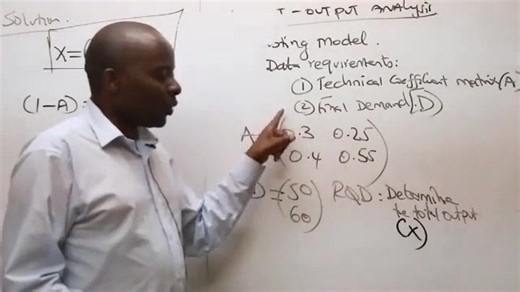 Solution
T-OUTPUT ANALYSIS
X=(
ting model.
Data requirements:
① Technical Coefficient matrix (A)
② Final Demand (D)
(I-A)
A 0.3 0.25
0.4 0.55
D = (50
60)
RQD: Determine
the total output
(X)